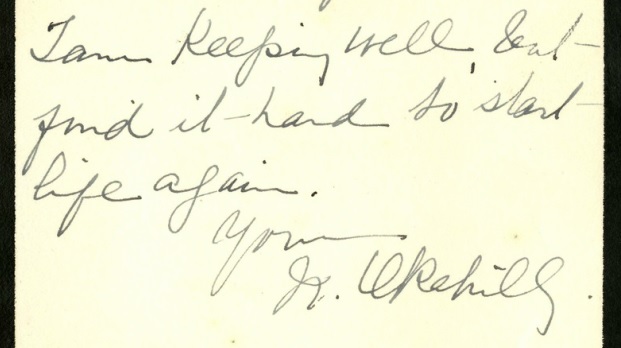 I am Keeping Well, but
find it hard to start
life again.
Yours